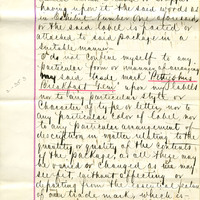 having upon it the said words as
in Exhibit number One aforesaid
or the said label is pasted or
attached to said package in a
suitable manner.
I do not confine myself to any
particular form or manner
my said trade mark "Pettijohns
Breakfast Gem" upon my labels
nor to any particular style or
character of type or letter, nor to
any particular color of label, nor
to any particular arrangement of
decorations in matter relating to the
quantity or quality of the contents
of the package, as all these may
be varied or changed as we may
see fit, without affecting or
departing from the essential feature
of our trade mark, which is